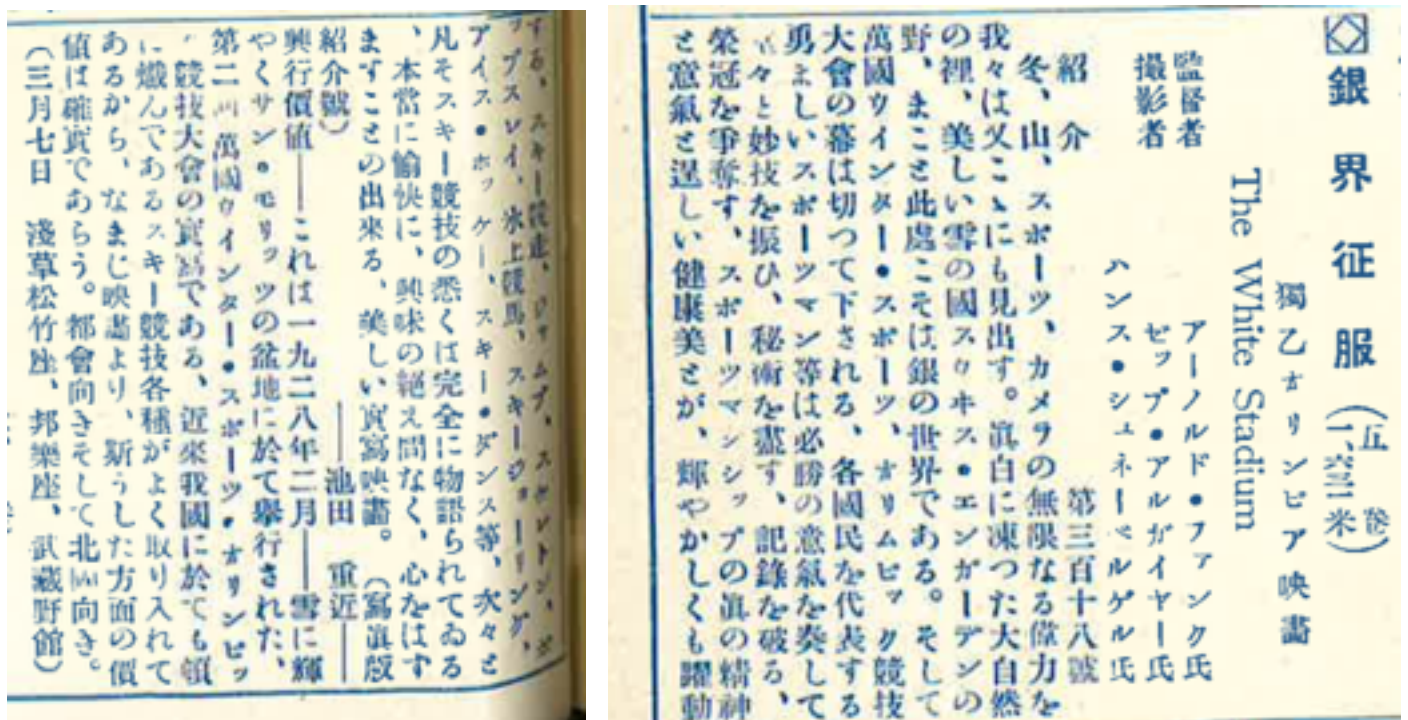 銀界征服(五卷)
(一、六三二米)
獨乙オリンピア映畵
The White Stadium
監督者 アーノルド・ファンク氏
ゼップ・アルガイヤー氏
撮影者 ハンス・シュネーベルゲル氏
紹介 第三百十八號
冬、山、スポーツ、カメラの無限なる偉力を
我々は又こゝにも見出す。眞白に凍つた大自然
の裡、美しい雪の國スウ井ス・エンガーデンの
野、まこと此處こそは銀の世界である。そして
萬國ウインター・スポーツ、オリムピック競技
大會の幕は切つて下される、各國民を代表する
勇ましいスポーツマン等は必勝の意氣を奏して
々と妙技を振ひ、秘術を盡す、記錄を破る、
榮冠を爭奪す、スポーツマンシップの眞の精神
と意氣と逞しい健康美とが、輝やかしくも躍動
する、スキー競走、ジャムプ、スケレトン、ボ
ップスレイ、氷上競馬、スキージョーリング、
アイス・ホッケー、スキー・ダンス等、次々と
凡そスキー競技の悉くは完全に物語られてゐる
、本當に愉快に、興味の絕え間なく、心をはず
ますことの出來る、美しい實寫映畵。(寫眞版
紹介號)――池田 重近――
興行價値――これは一九二八年二月――雪に輝
やくサン・モリッツの盆地に於て擧行された、
第二回萬國ウインター・スポーツ・オリンピッ
ク競技大會の實寫である、近來我國に於ても頓
に熾んであるスキー競技各種がよく取り入れて
あるから、なまじ映畵より、斯うした方面の價
値は確實であらう。都會向きそして北國向き。
(三月七日 淺草松竹座、邦樂座、武藏野館)